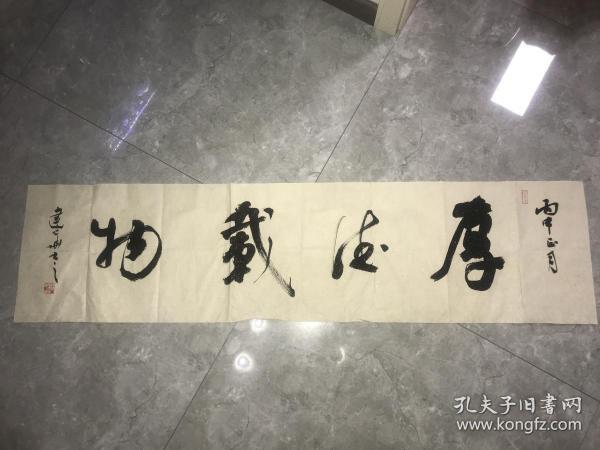 丙申正月
厚德载物
孔夫子旧書网
www.kongfz.com